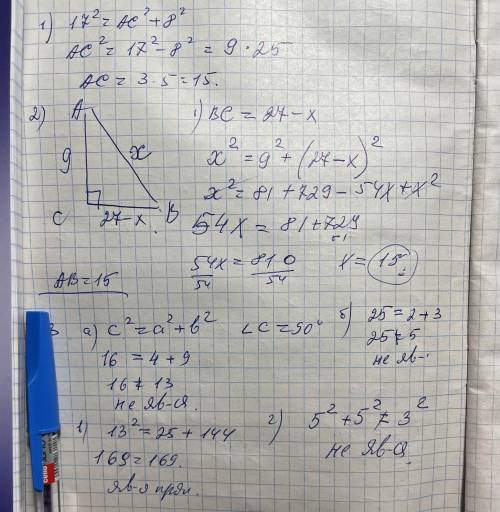 1) 17² = AC² + 8²
AC² = 17² − 8² = 9 · 25
AC = 3 · 5 = 15.
2) A
9
x
C 27 − x B
1) BC = 27 − x
x² = 9² + (27 − x)²
x² = 81 + 729 − 54x + x²
54x = 81 + 729
54x/54 = 810/54 x = 15
AB = 15
3 а) c² = a² + b² ∠C = 90°
16 = 4 + 9
16 ≠ 13
не яв-ся.
б) 25 = 2 + 3
25 ≠ 5
не яв-
в) 13² = 25 + 144
169 = 169.
яв-я прям.
г) 5² + 5² ≠ 3²
не яв-ся